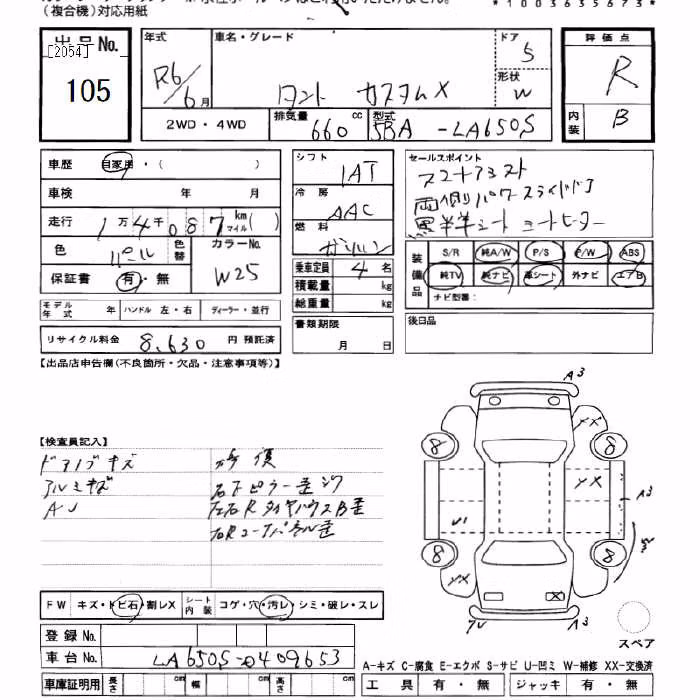 （複合機）対応用紙
*1003635673*
出品No.
[2054]
105
年式 R6/6月
車名・グレード タント カスタムX
ドア 5
形状 W
2WD・4WD
排気量 660 cc
型式 5BA-LA650S
評価点 R
内装 B
車歴 自家用・( )
車検 年 月
走行 1万4千087 km マイル ( )
色 パール
色替
カラーNo. W25
保証書 有・無
モデル年式 年 ハンドル 左・右 ディーラー・並行
リサイクル料金 8,630 円 預託済
シフト IAT
冷房 AAC
燃料 ガソリン
乗車定員 4 名
積載量 kg
総重量 kg
書類期限 月 日
セールスポイント
スマートアシスト
両側パワースライドドア
黒半半シート シートヒーター
装備品
S/R 純A/W P/S P/W ABS
純TV 純ナビ 革シート 外ナビ エアB
ナビ型番：
後日品
【出品店申告欄(不良箇所・欠品・注意事項等)】
【検査員記入】
ドアノブキズ
アルミキズ
AJ
右下ピラー歪
左右RタイヤハウスB歪
右Rコーナーパネル歪
A3
XX
8
8
XX
A3
U1
8
8
XX
A3
FW キズ・トビ石・割レX
シート内装 コゲ・穴・汚レ・シミ・破レ・スレ
登録No.
車台No. LA650S-0409653
車庫証明用 長さ cm 幅 cm 高さ cm
スペア
A-キズ C-腐食 E-エクボ S-サビ U-凹ミ W-補修 XX-交換済
工具 有・無 ジャッキ 有・無